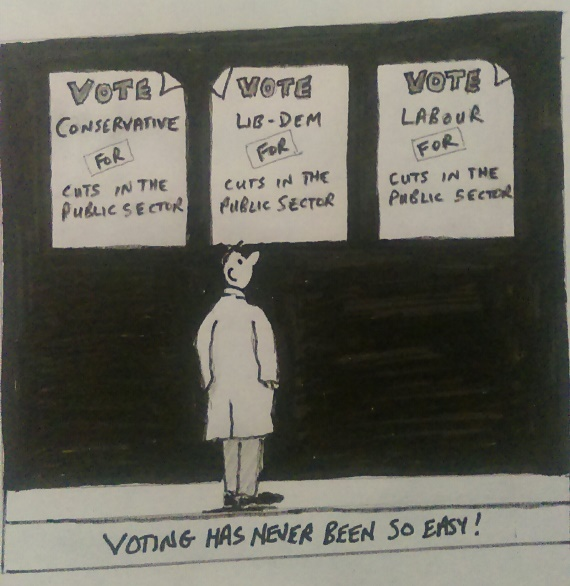 VOTE
CONSERVATIVE
FOR
CUTS IN THE
PUBLIC SECTOR
VOTE
LIB-DEM
FOR
CUTS IN THE
PUBLIC SECTOR
VOTE
LABOUR
FOR
CUTS IN THE
PUBLIC SECTOR
VOTING HAS NEVER BEEN SO EASY!